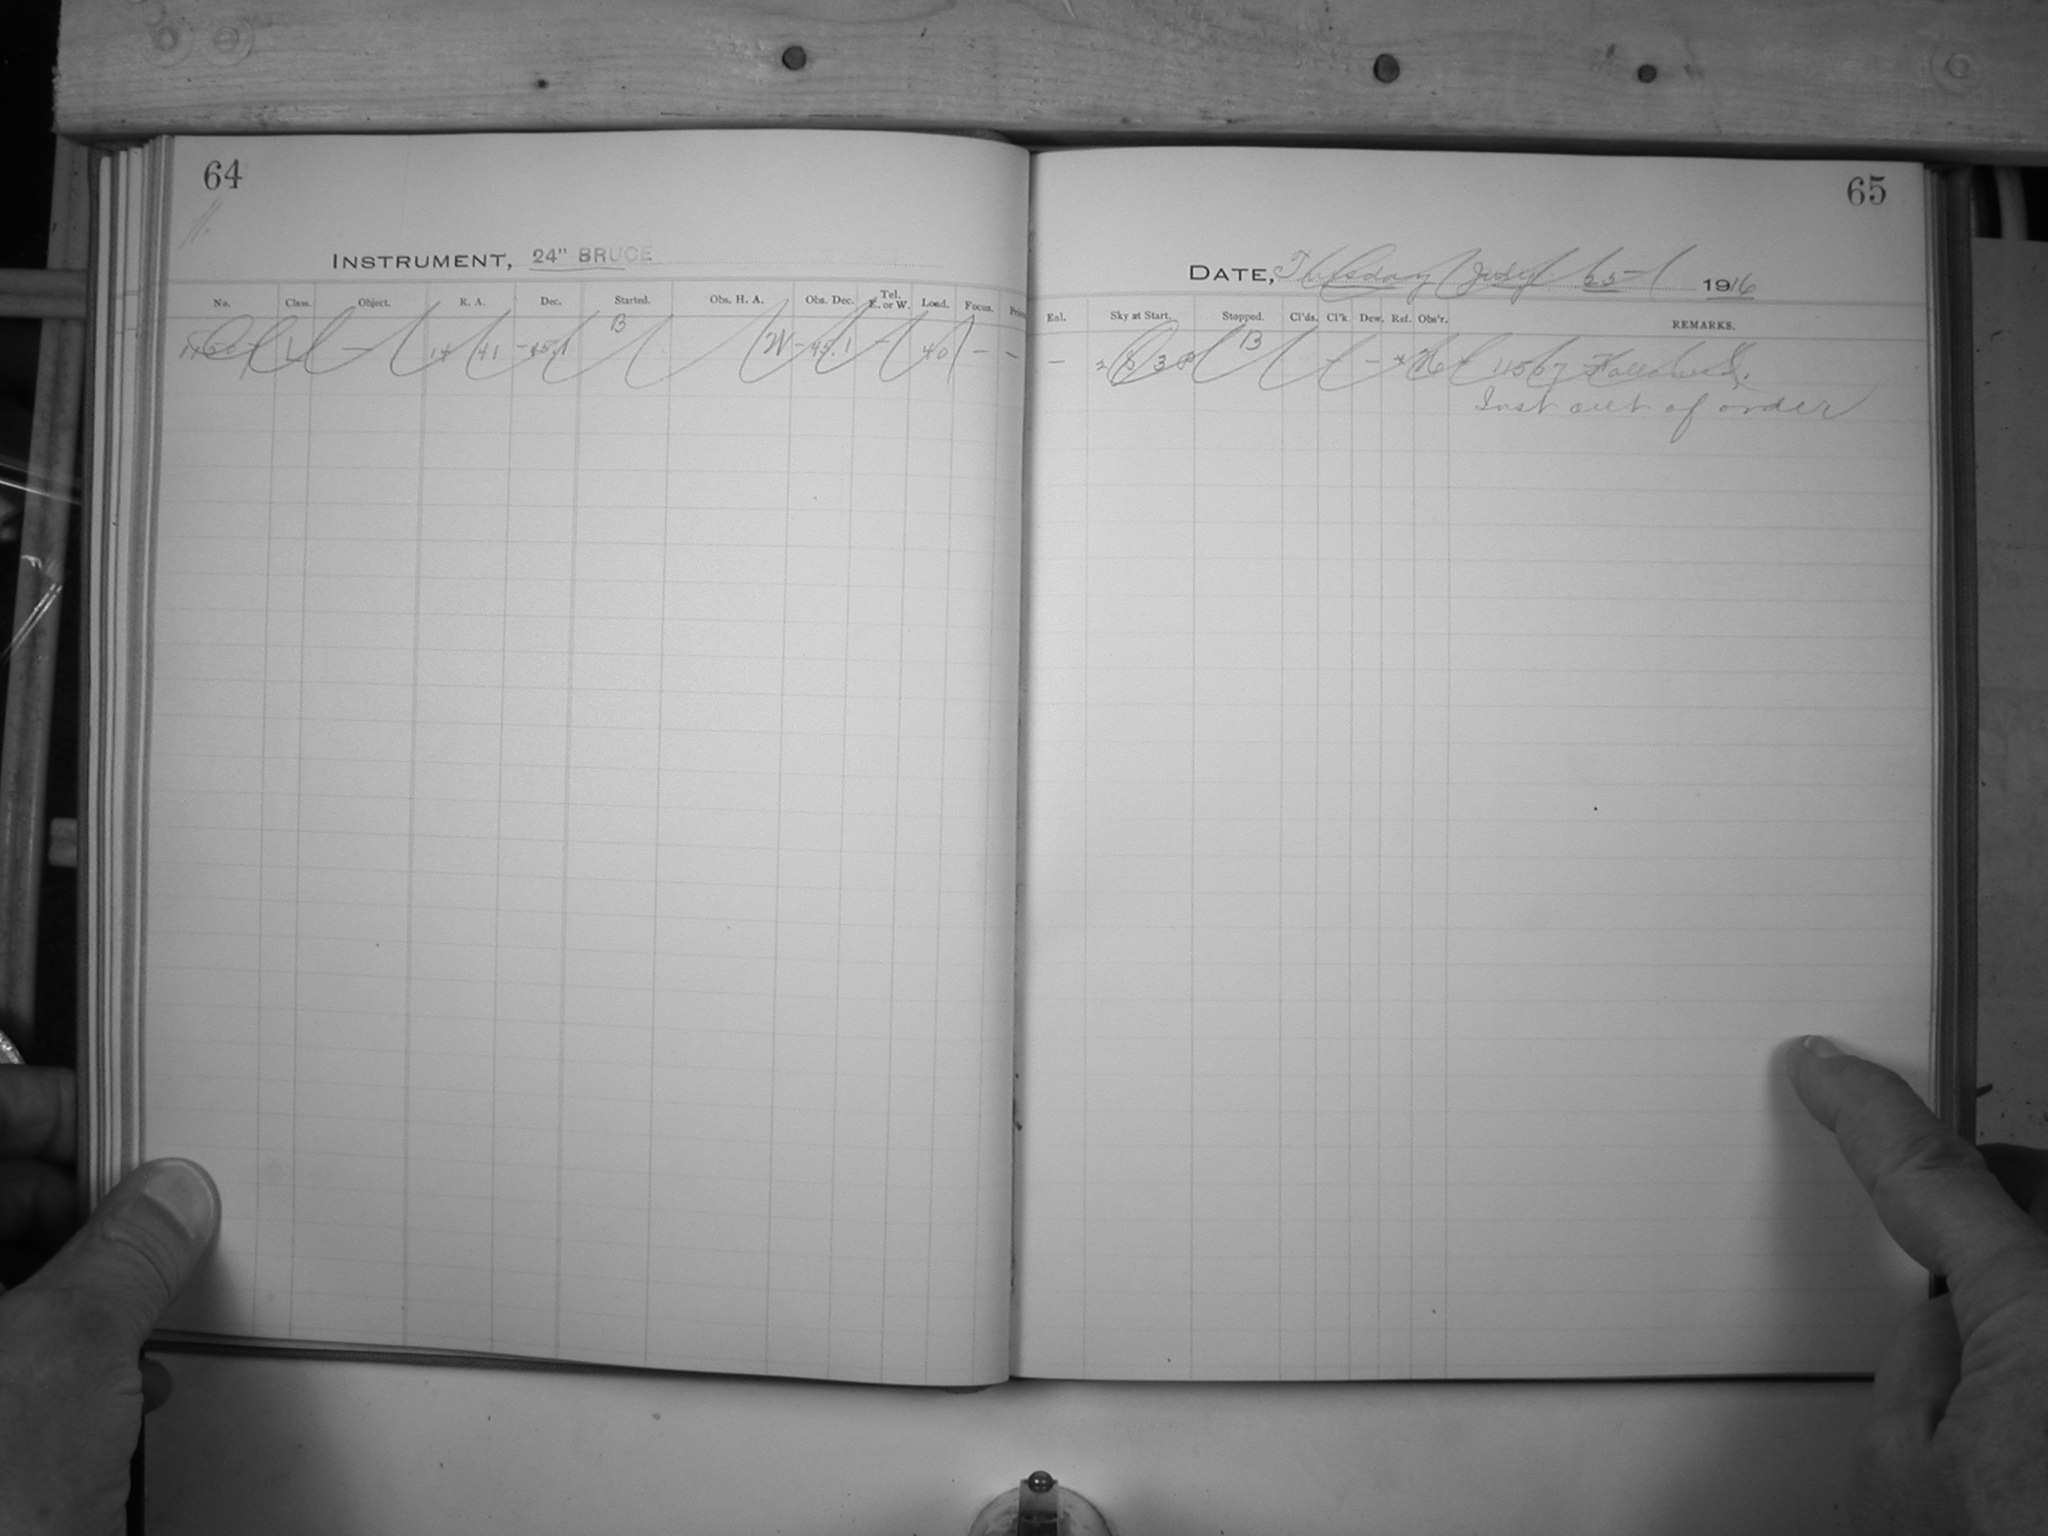 64
65
INSTRUMENT, 24" BRUCE
DATE, July 1916
No. Class. Object. R. A. Dec. Started. Obs. H. A. Obs. Dec. Tel. E. or W. Load. Focus.
Eal. Sky at Start. Stopped. Cl'ds. Cl'k Dew. Ref. Obs'r. REMARKS.
1 - 14 41 -45.1 B -45.1 - 40 - -
- 2 8 3 B - - 11507
Inst out of order